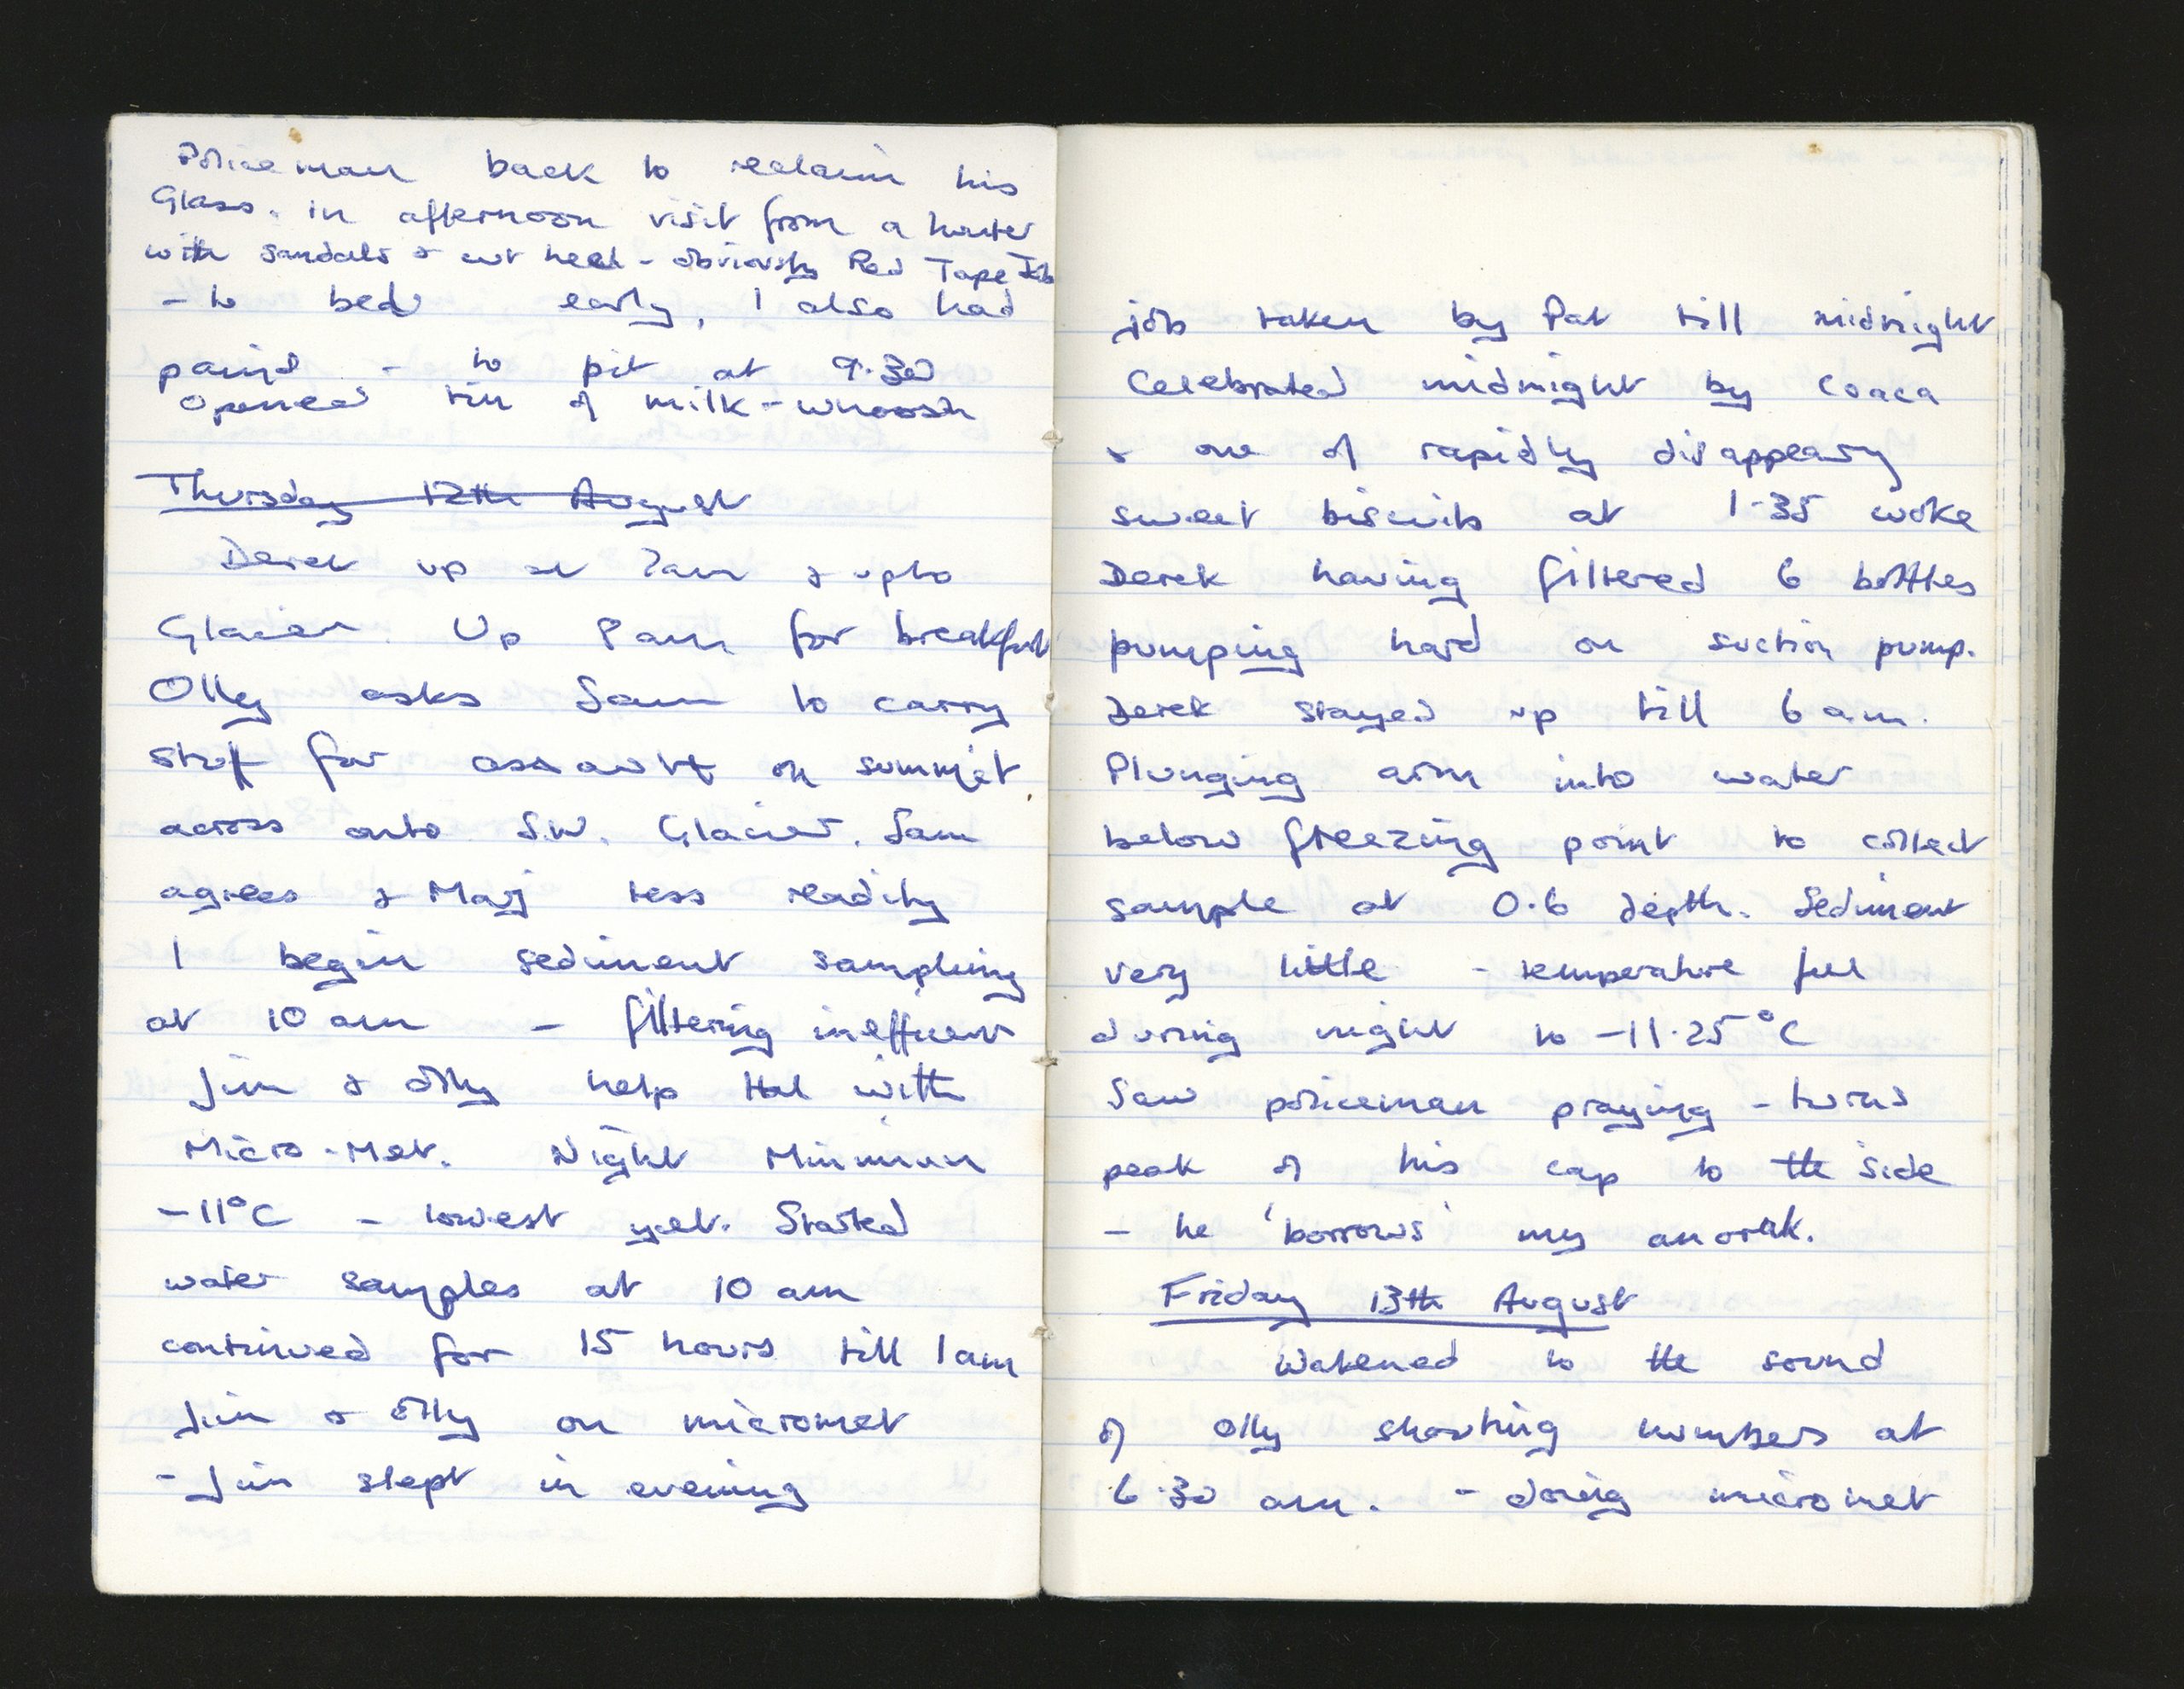 Policeman back to reclaim his
Glass. in afternoon visit from a hunter
with sandals & cut heel - obviously Red Tape Job
- to bed early, I also had
pains - to pit at 9.30
opened tin of milk - whoosh
Thursday 12th August
Derek up at 7am & up to
Glacier. Up 8am for breakfast
Olly asks Sam to carry
stuff for assault on summit
across onto S.W. Glacier. Sam
agrees & Marj less readily
I begin sediment sampling
at 10 am - filtering inefficient
Jim & Olly help Hal with
Micro-Met. Night Minimum
-11°C - lowest yet. Started
water samples at 10 am
continued for 15 hours till 1am
Jim & Olly on micromet
- Jim slept in evening
job taken by Pat till midnight
Celebrated midnight by coaca
& one of rapidly disappearing
sweet biscuits at 1.35 woke
Derek having filtered 6 bottles
pumping hard on suction pump.
Derek stayed up till 6 am.
Plunging arm into water
below freezing point to collect
sample at 0.6 depth. Sediment
very little - temperature fell
during night to -11.25°C
Saw policeman praying - turns
peak of his cap to the side
- he 'borrows' my anorak.
Friday 13th August
Wakened to the sound
of Olly shouting numbers at
6.30 am. - doing micromet